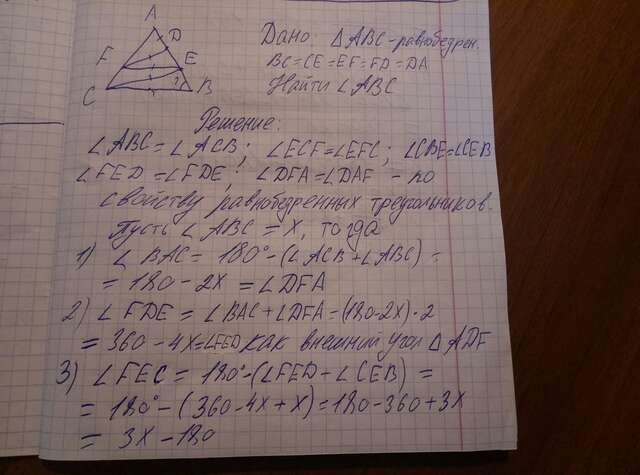 A
D
F
E
C
B
Дано: ΔABC - равнобедрен.
BC = CE = EF = FD = DA
Найти ∠ABC
Решение:
∠ABC = ∠ACB; ∠ECF = ∠EFC; ∠CBE = ∠CEB
∠FED = ∠FDE; ∠DFA = ∠DAF - по
свойству равнобедренных треугольников.
Пусть ∠ABC = X, тогда
1) ∠BAC = 180° - (∠ACB + ∠ABC) =
= 180 - 2X = ∠DFA
2) ∠FDE = ∠BAC + ∠DFA = (180 - 2X) · 2
= 360 - 4X = ∠FED как внешний угол ΔADF
3) ∠FEC = 180° - (∠FED + ∠CEB) =
= 180° - (360 - 4X + X) = 180 - 360 + 3X
= 3X - 180